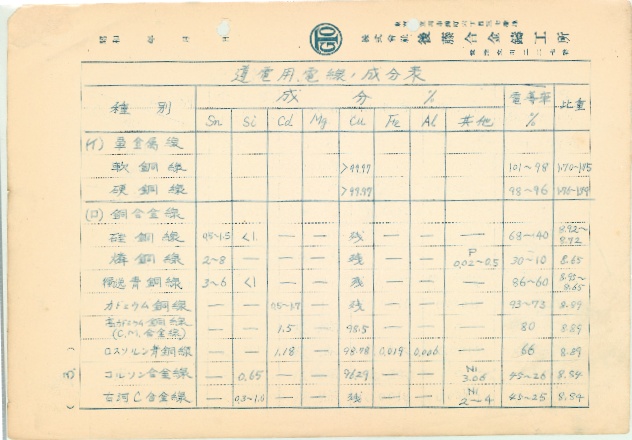 昭和 年 月 日
GTO
株式會社 後藤合金鑄工所
送電用電線ノ成分表
種別 成分 % 電導率 % 比重
Sn Si Cd Mg Cu Fe Al 其他
(イ) 單金属線
軟銅線 >99.97 101~98
硬銅線 >99.97 98~96
(ロ) 銅合金線
硅銅線 0.5~1.5 <1. — — 残 — — — 68~40 8.92~8.72
燐銅線 2~8 — — — 残 — — P 0.02~0.5 30~10 8.65
青銅線 3~6 <1 — — 残 — — — 86~60
カドミウム銅線 — — 0.5~1.7 — 残 — — — 93~73 8.89
銅線 (C.M.合金線) — — 1.5 — 98.5 — — — 80 8.89
青銅線 — — 1.18 — 98.78 0.019 0.006 — 66 8.89
コルソン合金線 — 0.65 — — 96.29 — — Ni 3.06 45~26 8.84
古河C合金線 — — — 残 — — Ni 2~4 45~25 8.84